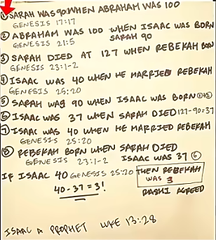 ① SARAH WAS 90 WHEN ABRAHAM WAS 100
GENESIS 17:17
② ABRAHAM WAS 100 WHEN ISAAC WAS BORN
GENESIS 21:5 SARAH 90
③ SARAH DIED AT 127 WHEN REBEKAH BORN
GENESIS 23:1-2
④ ISAAC WAS 40 WHEN HE MARRIED REBEKAH
GENESIS 25:20
⑤ SARAH WAS 90 WHEN ISAAC WAS BORN
⑥ ISAAC WAS 37 WHEN SARAH DIED 127-90=37
⑦ ISAAC WAS 40 WHEN HE MARRIED REBEKAH
GENESIS 25:20
⑧ REBEKAH BORN WHEN SARAH DIED
GENESIS 23:1-2 ISAAC WAS 37 ⑥
IF ISAAC 40 GENESIS 25:20 THEN REBEKAH
WAS 3
40-37=3!
RASHI AGREED
ISAAC A PROPHET LUKE 13:28